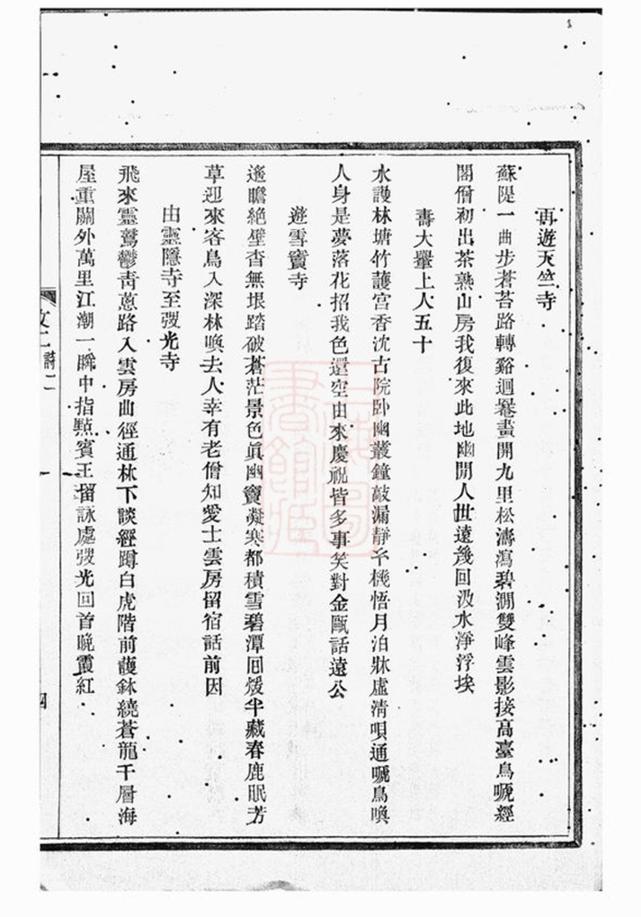 再遊天竺寺
蘇隄一曲步蒼苔路轉谿迴罨畫開九里松濤瀉碧澗雙峰雲影接高臺鳥嚦經
閣僧初出茶熟山房我復來此地幽閒人世遠幾回汲水淨浮埃
壽大翬上人五十
水護林塘竹護宮香沈古院卧幽叢鐘敲漏靜千機悟月泊牀虛清唄通嚦鳥喚
人身是夢落花招我色還空由來慶祝皆多事笑對金甌話遠公
遊雪竇寺
遙瞻絕壁杳無垠踏破蒼茫景色眞幽竇凝寒都積雪碧潭囘煖半藏春鹿眠芳
草迎來客鳥入深林喚去人幸有老僧知愛士雲房留宿話前因
由靈隱寺至弢光寺
飛來靈鷲鬱靑蔥路入雲房曲徑通林下談經蹲白虎階前護鉢繞蒼龍千層海
屋重關外萬里江潮一瞬中指點賓王留詠處弢光回首晚霞紅
詩二
四